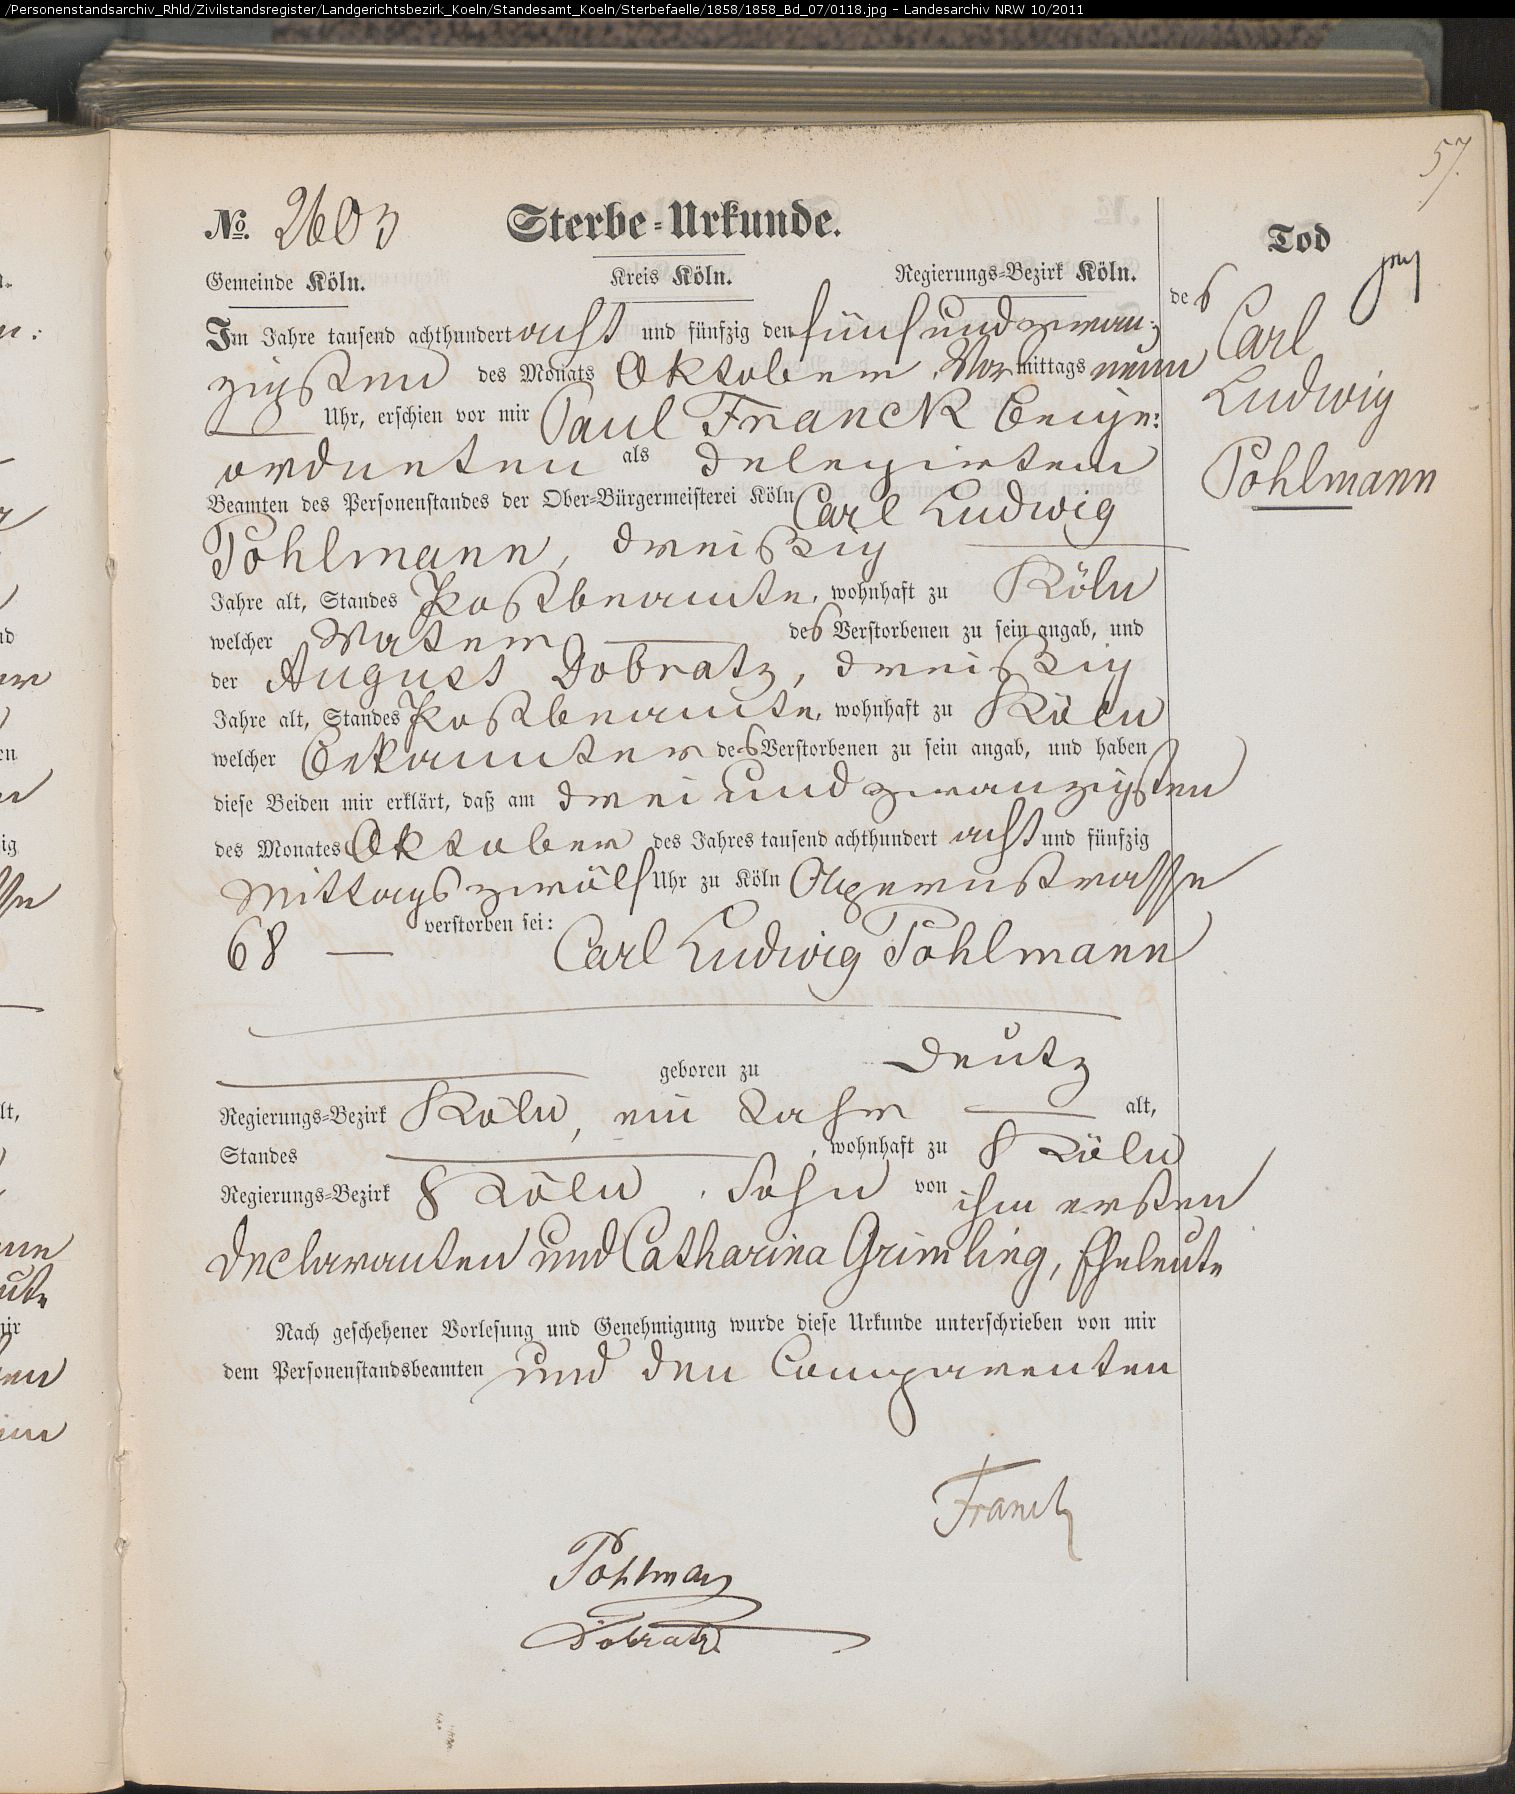 /Personenstandsarchiv_Rhld/Zivilstandsregister/Landgerichtsbezirk_Koeln/Standesamt_Koeln/Sterbefaelle/1858/1858_Bd_07/0118.jpg - Landesarchiv NRW 10/2011
57.
No. 2603 Sterbe-Urkunde.
Gemeinde Köln. Kreis Köln. Regierungs-Bezirk Köln.
Im Jahre tausend achthundert acht und fünfzig den fünfundzwan:
zigsten des Monats Oktober, Vormittags neun
Uhr, erschien vor mir Paul Franck Beige:
ordneten als delegirtem
Beamten des Personenstandes der Ober-Bürgermeisterei Köln Carl Ludwig
Pohlmann, dreißig
Jahre alt, Standes Postbeamte, wohnhaft zu Köln
welcher Vater des Verstorbenen zu sein angab, und
der August Dobratz, dreißig
Jahre alt, Standes Postbeamte, wohnhaft zu Köln
welcher Bekannter des Verstorbenen zu sein angab, und haben
diese Beiden mir erklärt, daß am dreiundzwanzigsten
des Monates Oktober des Jahres tausend achthundert acht und fünfzig
Mittags zwölf Uhr zu Köln
68 verstorben sei: Carl Ludwig Pohlmann
geboren zu Deutz
Regierungs-Bezirk Köln, ein Jahr alt,
Standes , wohnhaft zu Köln
Regierungs-Bezirk Köln, Sohn von ihm ersten
Declaranten und Catharina Grimling, Eheleute
Nach geschehener Vorlesung und Genehmigung wurde diese Urkunde unterschrieben von mir
dem Personenstandsbeamten und den Comparenten
Franck
Pohlmann
Dobratz
Tod
des
Carl
Ludwig
Pohlmann